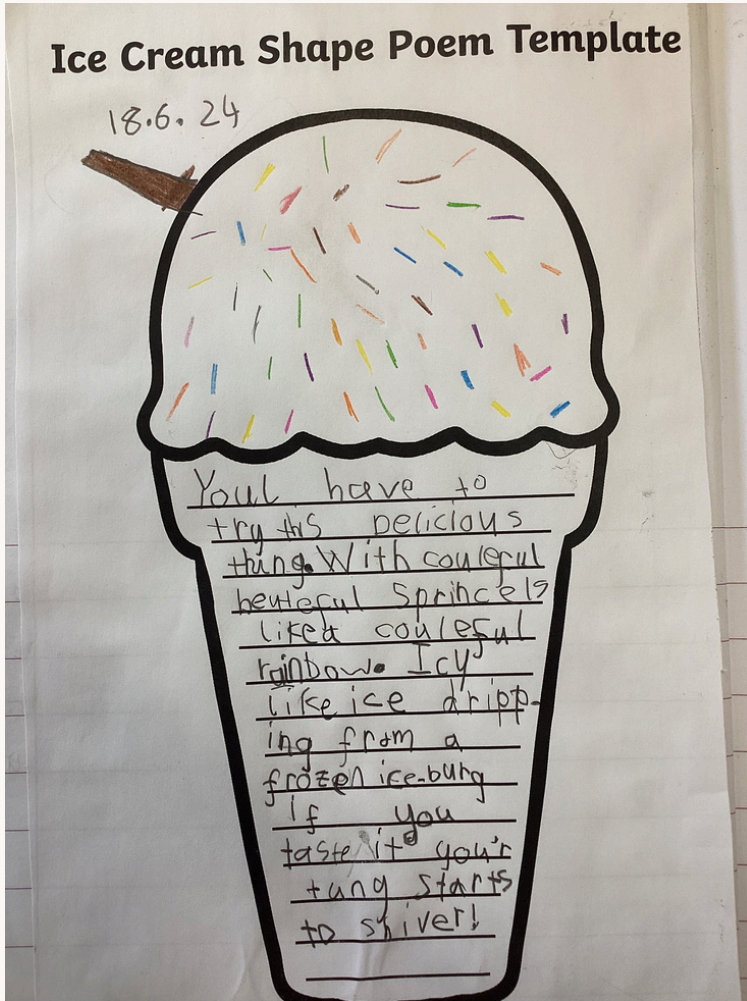 Ice Cream Shape Poem Template
18.6.24
Youl have to
try this Delicious
thing. With couleful
beuteful Sprincels
like a couleful
rainbow. Icy
like ice dripp-
ing from a
frozen ice-burg
If you
taste it you'r
tung starts
to shiver!